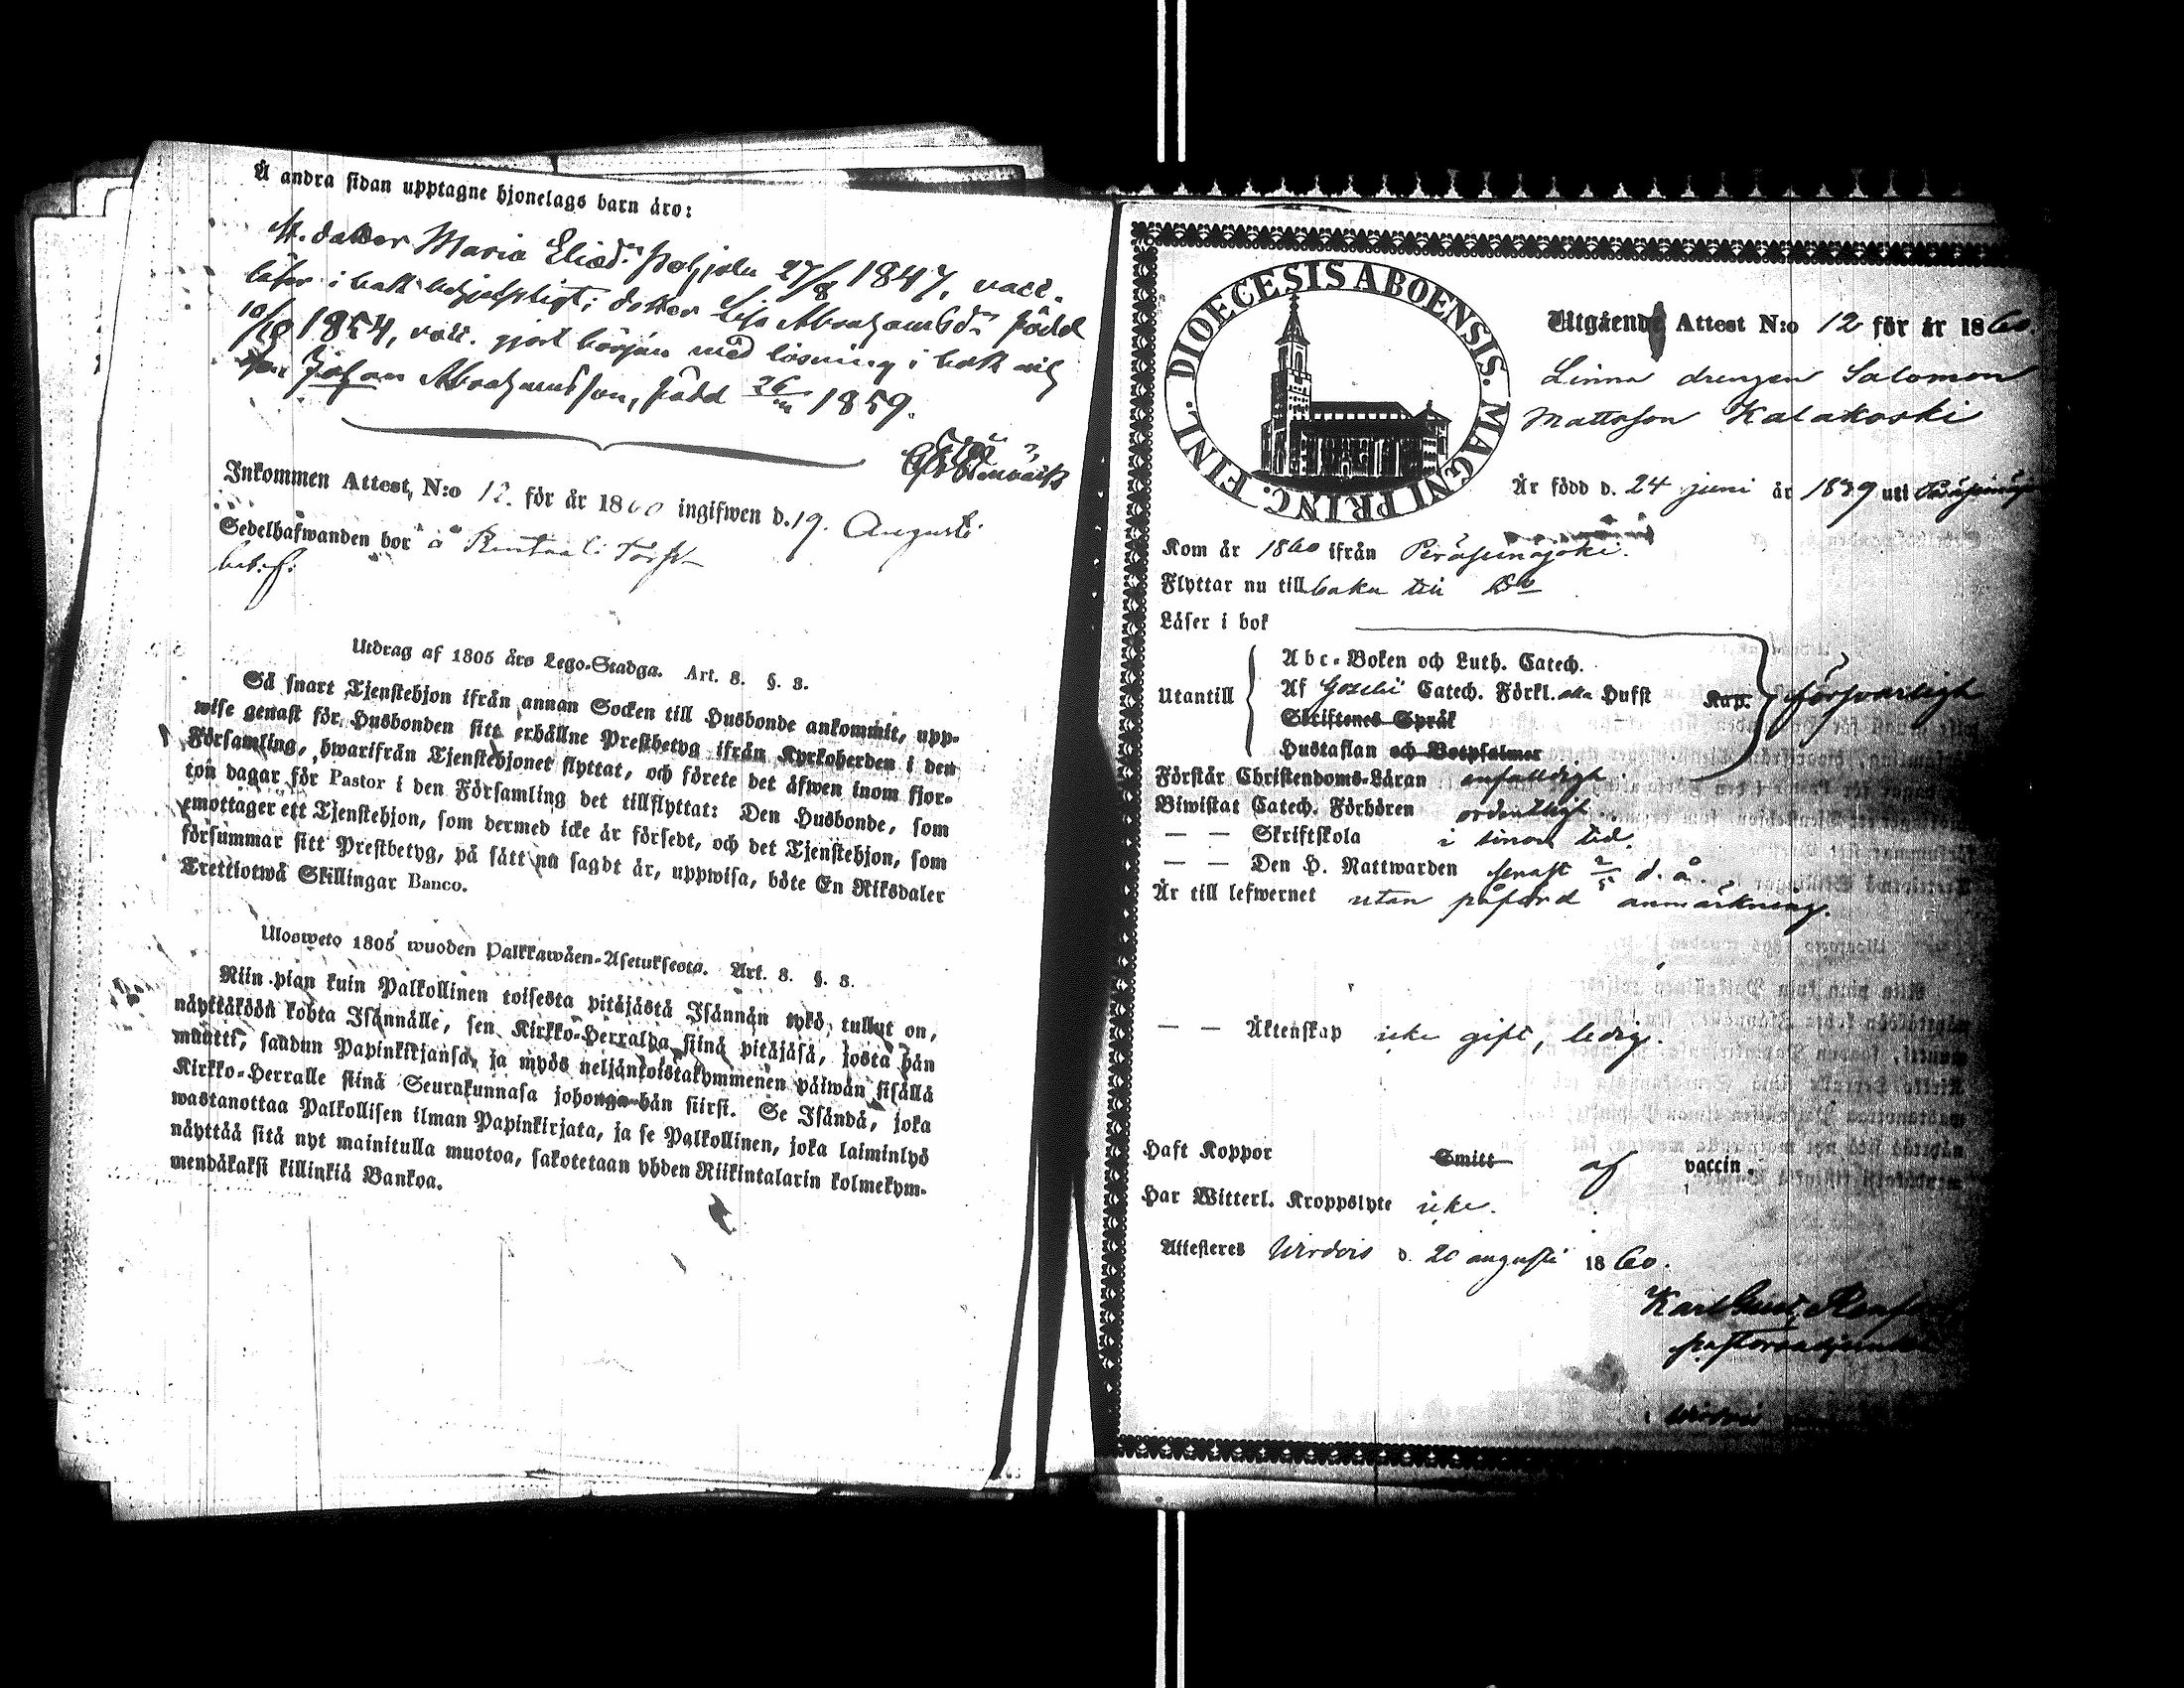 Å andra sidan upptagne hjonelags barn äro:
St. dotter Maria Eliæd:r Pohjola 27/8 1847, vacc.
läser i bok behjelpligt; dotter Lisa Abrahamsd:r född
10/10 1854, vacc. gjort början med läsning i bok och
son Johan Abrahamsson, född 26/ 1859.
Inkommen Attest, N:o 12. för år 1860 ingifwen d. 19. Augusti
Sedelhafwanden bor å Torp
Utdrag af 1805 års Lego-Stadga. Art. 8. §. 3.
Så snart Tjenstehjon ifrån annan Socken till Husbonde ankommit, upp-
wise genast för Husbonden sitt erhållne Prestbetyg ifrån Kyrkoherden i den
Församling, hwarifrån Tjenstehjonet flyttat, och förete det äfwen inom fjor-
ton dagar för Pastor i den Församling det tillflyttat: Den Husbonde, som
emottager ett Tjenstehjon, som dermed icke är försedt, och det Tjenstehjon, som
försummar sitt Prestbetyg, på sätt nu sagdt är, uppwisa, böte En Riksdaler
Trettiotwå Skillingar Banco.
Ulosweto 1805 wuoden Palkkawäen-Asetuksesta. Art. 8. §. 3.
Niin pian kuin Palkollinen toisesta pitäjästä Isännän tykö tullut on,
näyttäköön kohta Isännälle, sen Kirkko-Herralda siinä pitäjäsä, josta hän
muutti, saadun Papinkirjansa, ja myös neljäntoistakymmenen päiwän sisällä
Kirkko-Herralle siinä Seurakunnasa johonga hän siirsi. Se Isändä, joka
wastanottaa Palkollisen ilman Papinkirjata, ja se Palkollinen, joka laiminlyö
näyttää sitä nyt mainitulla muotoa, sakotetaan yhden Riikintalarin kolmekym-
mendäkaksi killinkiä Bankoa.
DIOECESIS ABOENSIS. MAGNI PRINC. FINL.
Utgående Attest N:o 12 för år 1860.
Linna drengen Salomon
Mattsson Kalakoski
Är född d. 24 juni år 1839 uti
Kom år 1860 ifrån Peräseinäjoki.
Flyttar nu till baka till D:o
Läser i bok
Utantill
Abc-Boken och Luth. Catech.
Af Gezelii Catech. Förkl. alla Hufst Kap. försvarligt
Skriftenes Språk
Hustaflan och Botpsalmer
Förstår Christendoms-Läran enfaldigt.
Biwistat Catech. Förhören ordentligt.
— — Skriftskola i sinom tid.
— — Den H. Nattwarden senast 2/5 d. å.
Är till lefwernet utan påförd anmärkning.
— — Äktenskap icke gift, ledig.
Haft Koppor Smitt af vaccin.
Har Witterl. Kroppslyte icke.
Attesteres Wirdois d. 20 augusti 1860.
Karl Gust.
pastorsadjunkt
i Wirdois